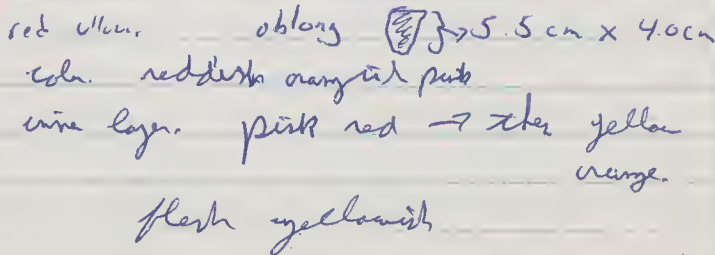 red oblong 5.5 cm x 4.0cm
colr. reddish orangish pink
inner layer. pink red → then yellow
orange.
flesh yellowish